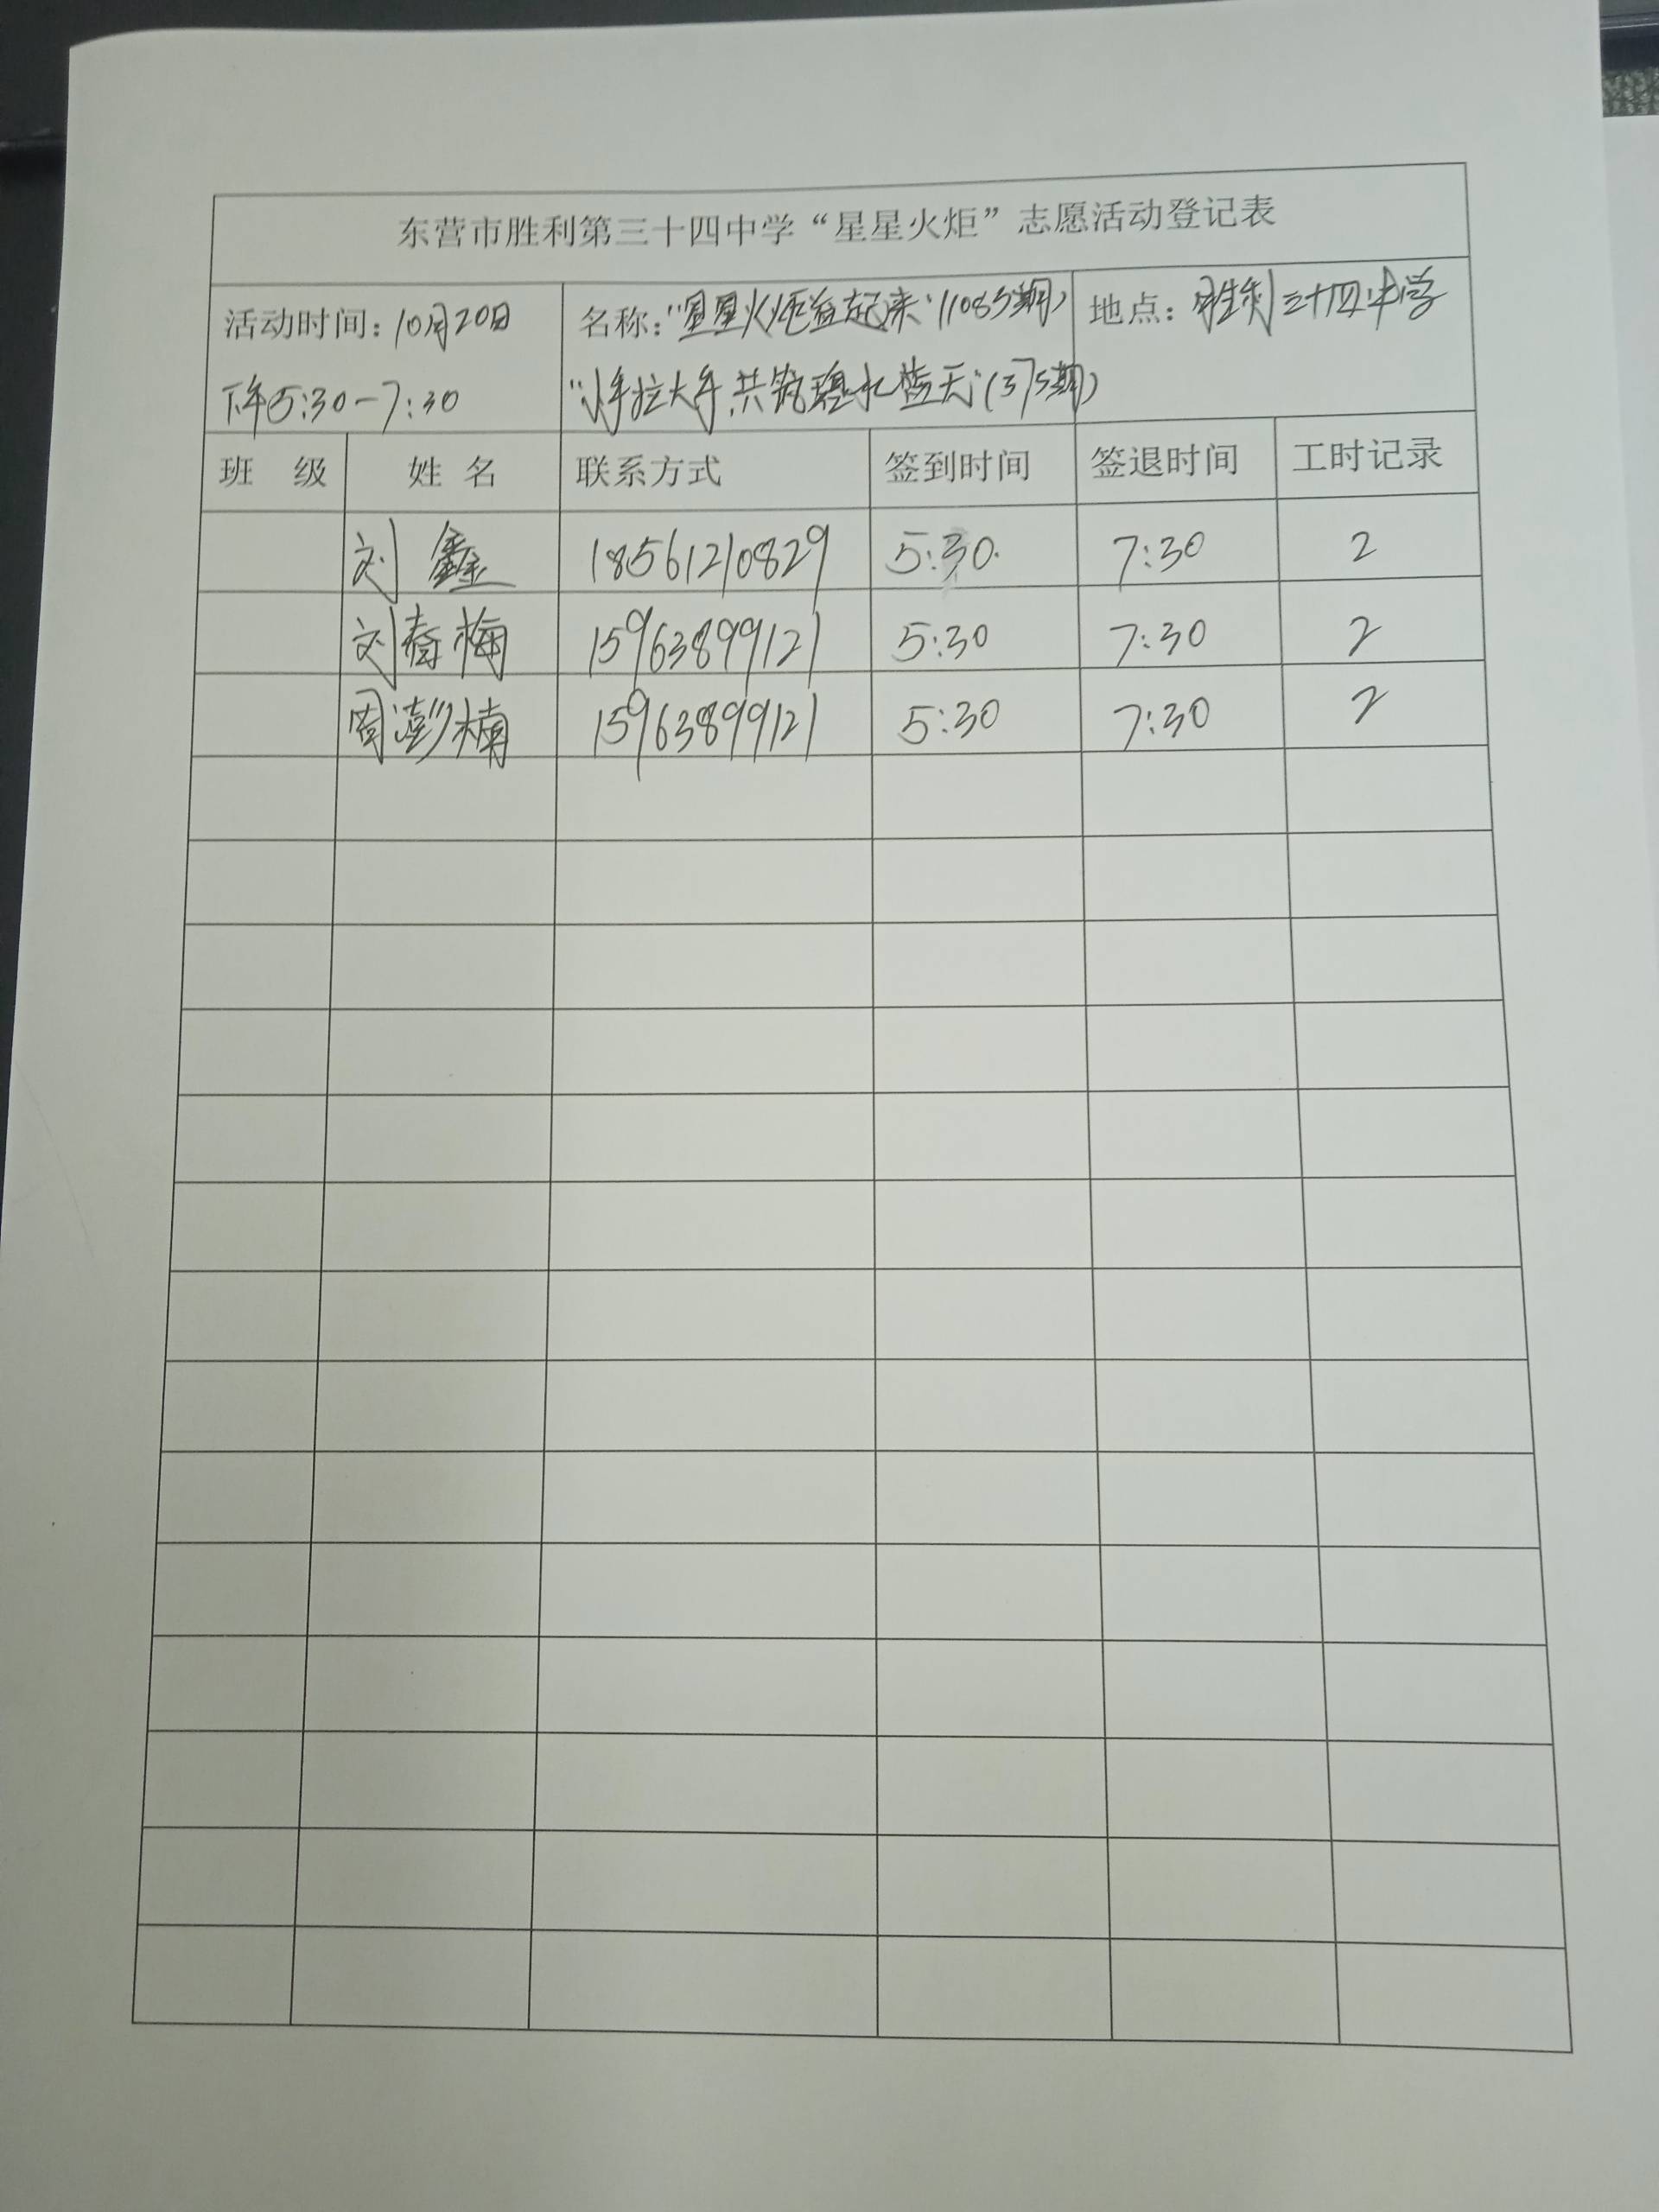 东营市胜利第三十四中学“星星火炬”志愿活动登记表
活动时间：10月20日
下午5:30-7:30
名称：“星星火炬益起来”(1085期)
“小手拉大手,共筑碧水蓝天”(375期)
地点：胜利三十四中学
班 级 姓 名 联系方式 签到时间 签退时间 工时记录
刘鑫 18561210829 5:30 7:30 2
刘春梅 15963899121 5:30 7:30 2
周澎楠 15963899121 5:30 7:30 2